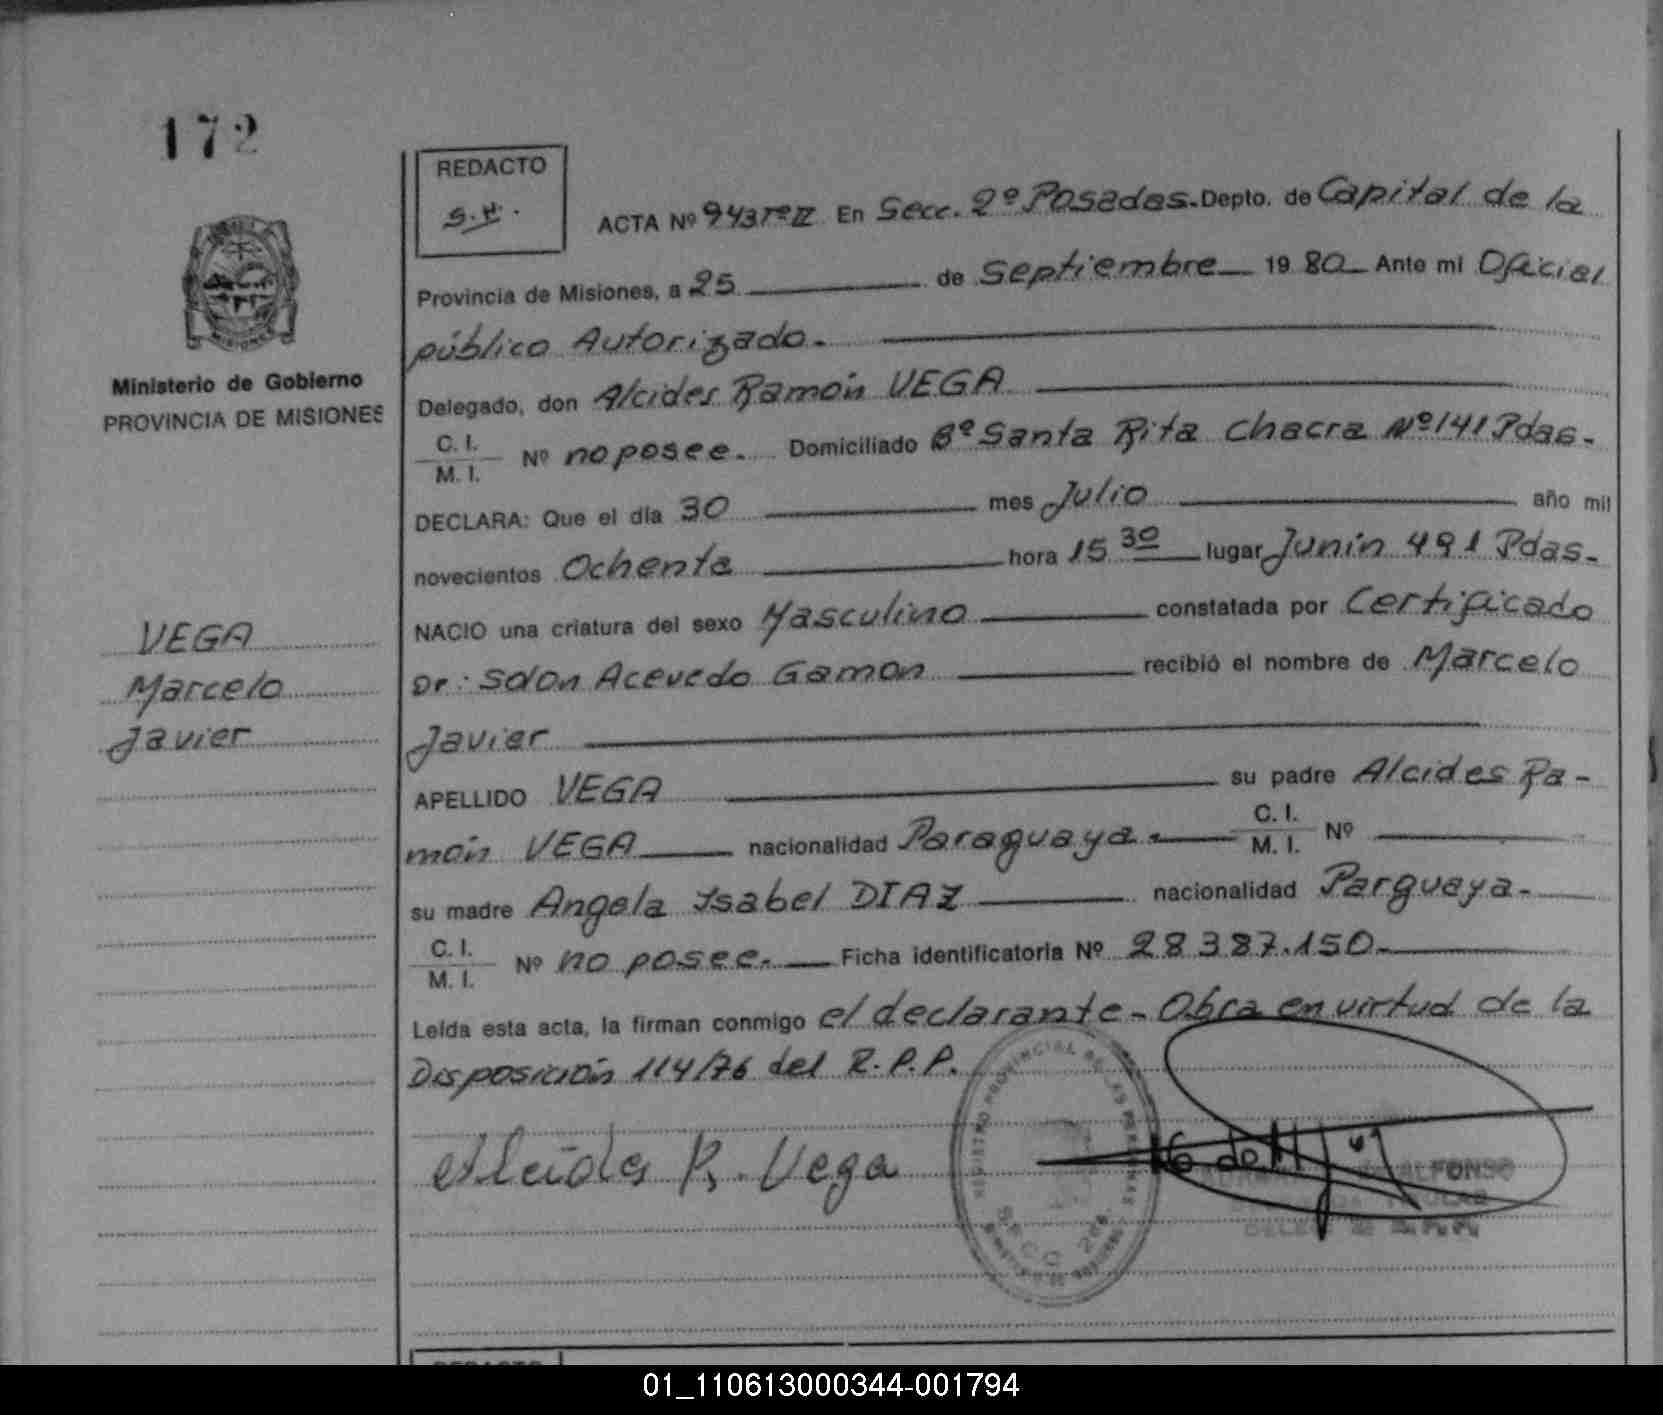 172
REDACTO
S.H.
ACTA Nº 943 Tº II En Secc. 2º Posadas. Depto. de Capital de la
Provincia de Misiones, a 25 de Septiembre 19 80 Ante mi Oficial
público Autorizado.
Ministerio de Gobierno
PROVINCIA DE MISIONES
Delegado, don Alcides Ramón VEGA
C. I.
M. I. Nº no posee. Domiciliado Bº Santa Rita Chacra Nº 141 Pdas.
DECLARA: Que el día 30 mes Julio año mil
novecientos Ochenta hora 15 30 lugar Junin 491 Pdas.
NACIO una criatura del sexo Masculino constatada por Certificado
VEGA
Marcelo
Javier
Dr: Solon Acevedo Gamon recibió el nombre de Marcelo
Javier
APELLIDO VEGA su padre Alcides Ra-
món VEGA nacionalidad Paraguaya. C. I.
M. I. Nº
su madre Angela Isabel DIAZ nacionalidad Parguaya.
C. I.
M. I. Nº no posee. Ficha identificatoria Nº 28387.150.
Leída esta acta, la firman conmigo el declarante. Obra en virtud de la
Disposición 114/76 del R.P.P.
Alcides R. Vega
REGISTRO PROVINCIAL DE LAS PERSONAS
SECC 2da.
ALFONSO
REDACTO
01_110613000344-001794